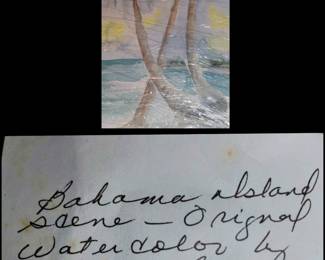 Bahama island
scene — Orignal
watercolor by